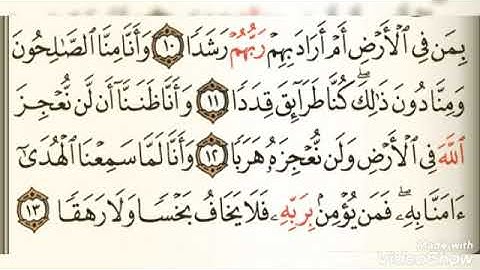 بِمَن فِي ٱلْأَرْضِ أَمْ أَرَادَ بِهِمْ رَبُّهُمْ رَشَدًا ١٠ وَأَنَّا مِنَّا ٱلصَّٰلِحُونَ
وَمِنَّا دُونَ ذَٰلِكَۖ كُنَّا طَرَآئِقَ قِدَدًا ١١ وَأَنَّا ظَنَنَّآ أَن لَّن نُّعْجِزَ
ٱللَّهَ فِي ٱلْأَرْضِ وَلَن نُّعْجِزَهُۥ هَرَبًا ١٢ وَأَنَّا لَمَّا سَمِعْنَا ٱلْهُدَىٰٓ
ءَامَنَّا بِهِۦۖ فَمَن يُؤْمِنۢ بِرَبِّهِۦ فَلَا يَخَافُ بَخْسًا وَلَا رَهَقًا ١٣
Made with
VideoShow